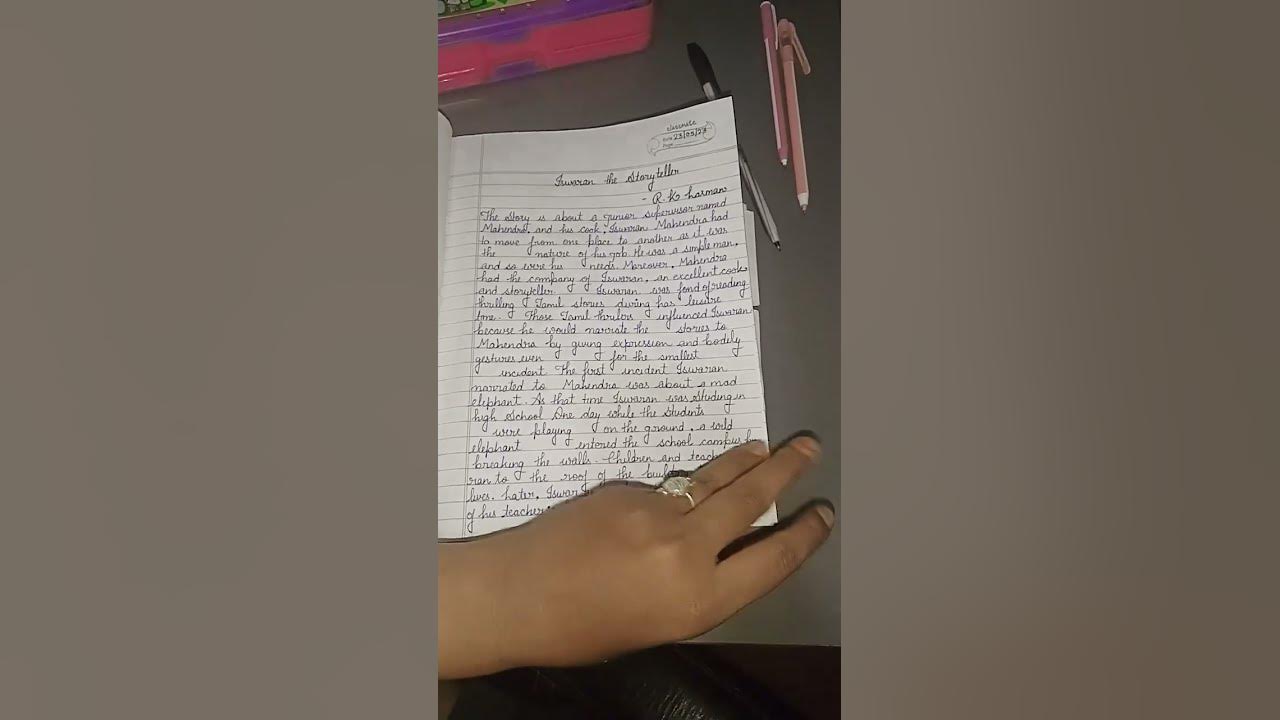 classmate
Date 23/05/23
Page
Iswaran the Storyteller
- R. K Laxman
The Story is about a junior supervisor named
Mahendra, and his cook, Iswaran. Mahendra had
to move from one place to another as it was
the nature of his job. He was a simple man,
and so were his needs. Moreover, Mahendra
had the company of Iswaran, an excellent cook
and storyteller Iswaran was fond of reading
thrilling Tamil stories during his leisure
time. Those Tamil thrillers influenced Iswaran
because he would narrate the stories to
Mahendra by giving expression and bodily
gestures even for the smallest
incident The first incident Iswaran
narrated to Mahendra was about a mad
elephant. As that time Iswaran was Studing in
high School One day while the Students
were playing on the ground, a wild
elephant entered the school campus
breaking the walls. Children and
ran to the roof of the
lives. Later, Iswaran
of his teacher